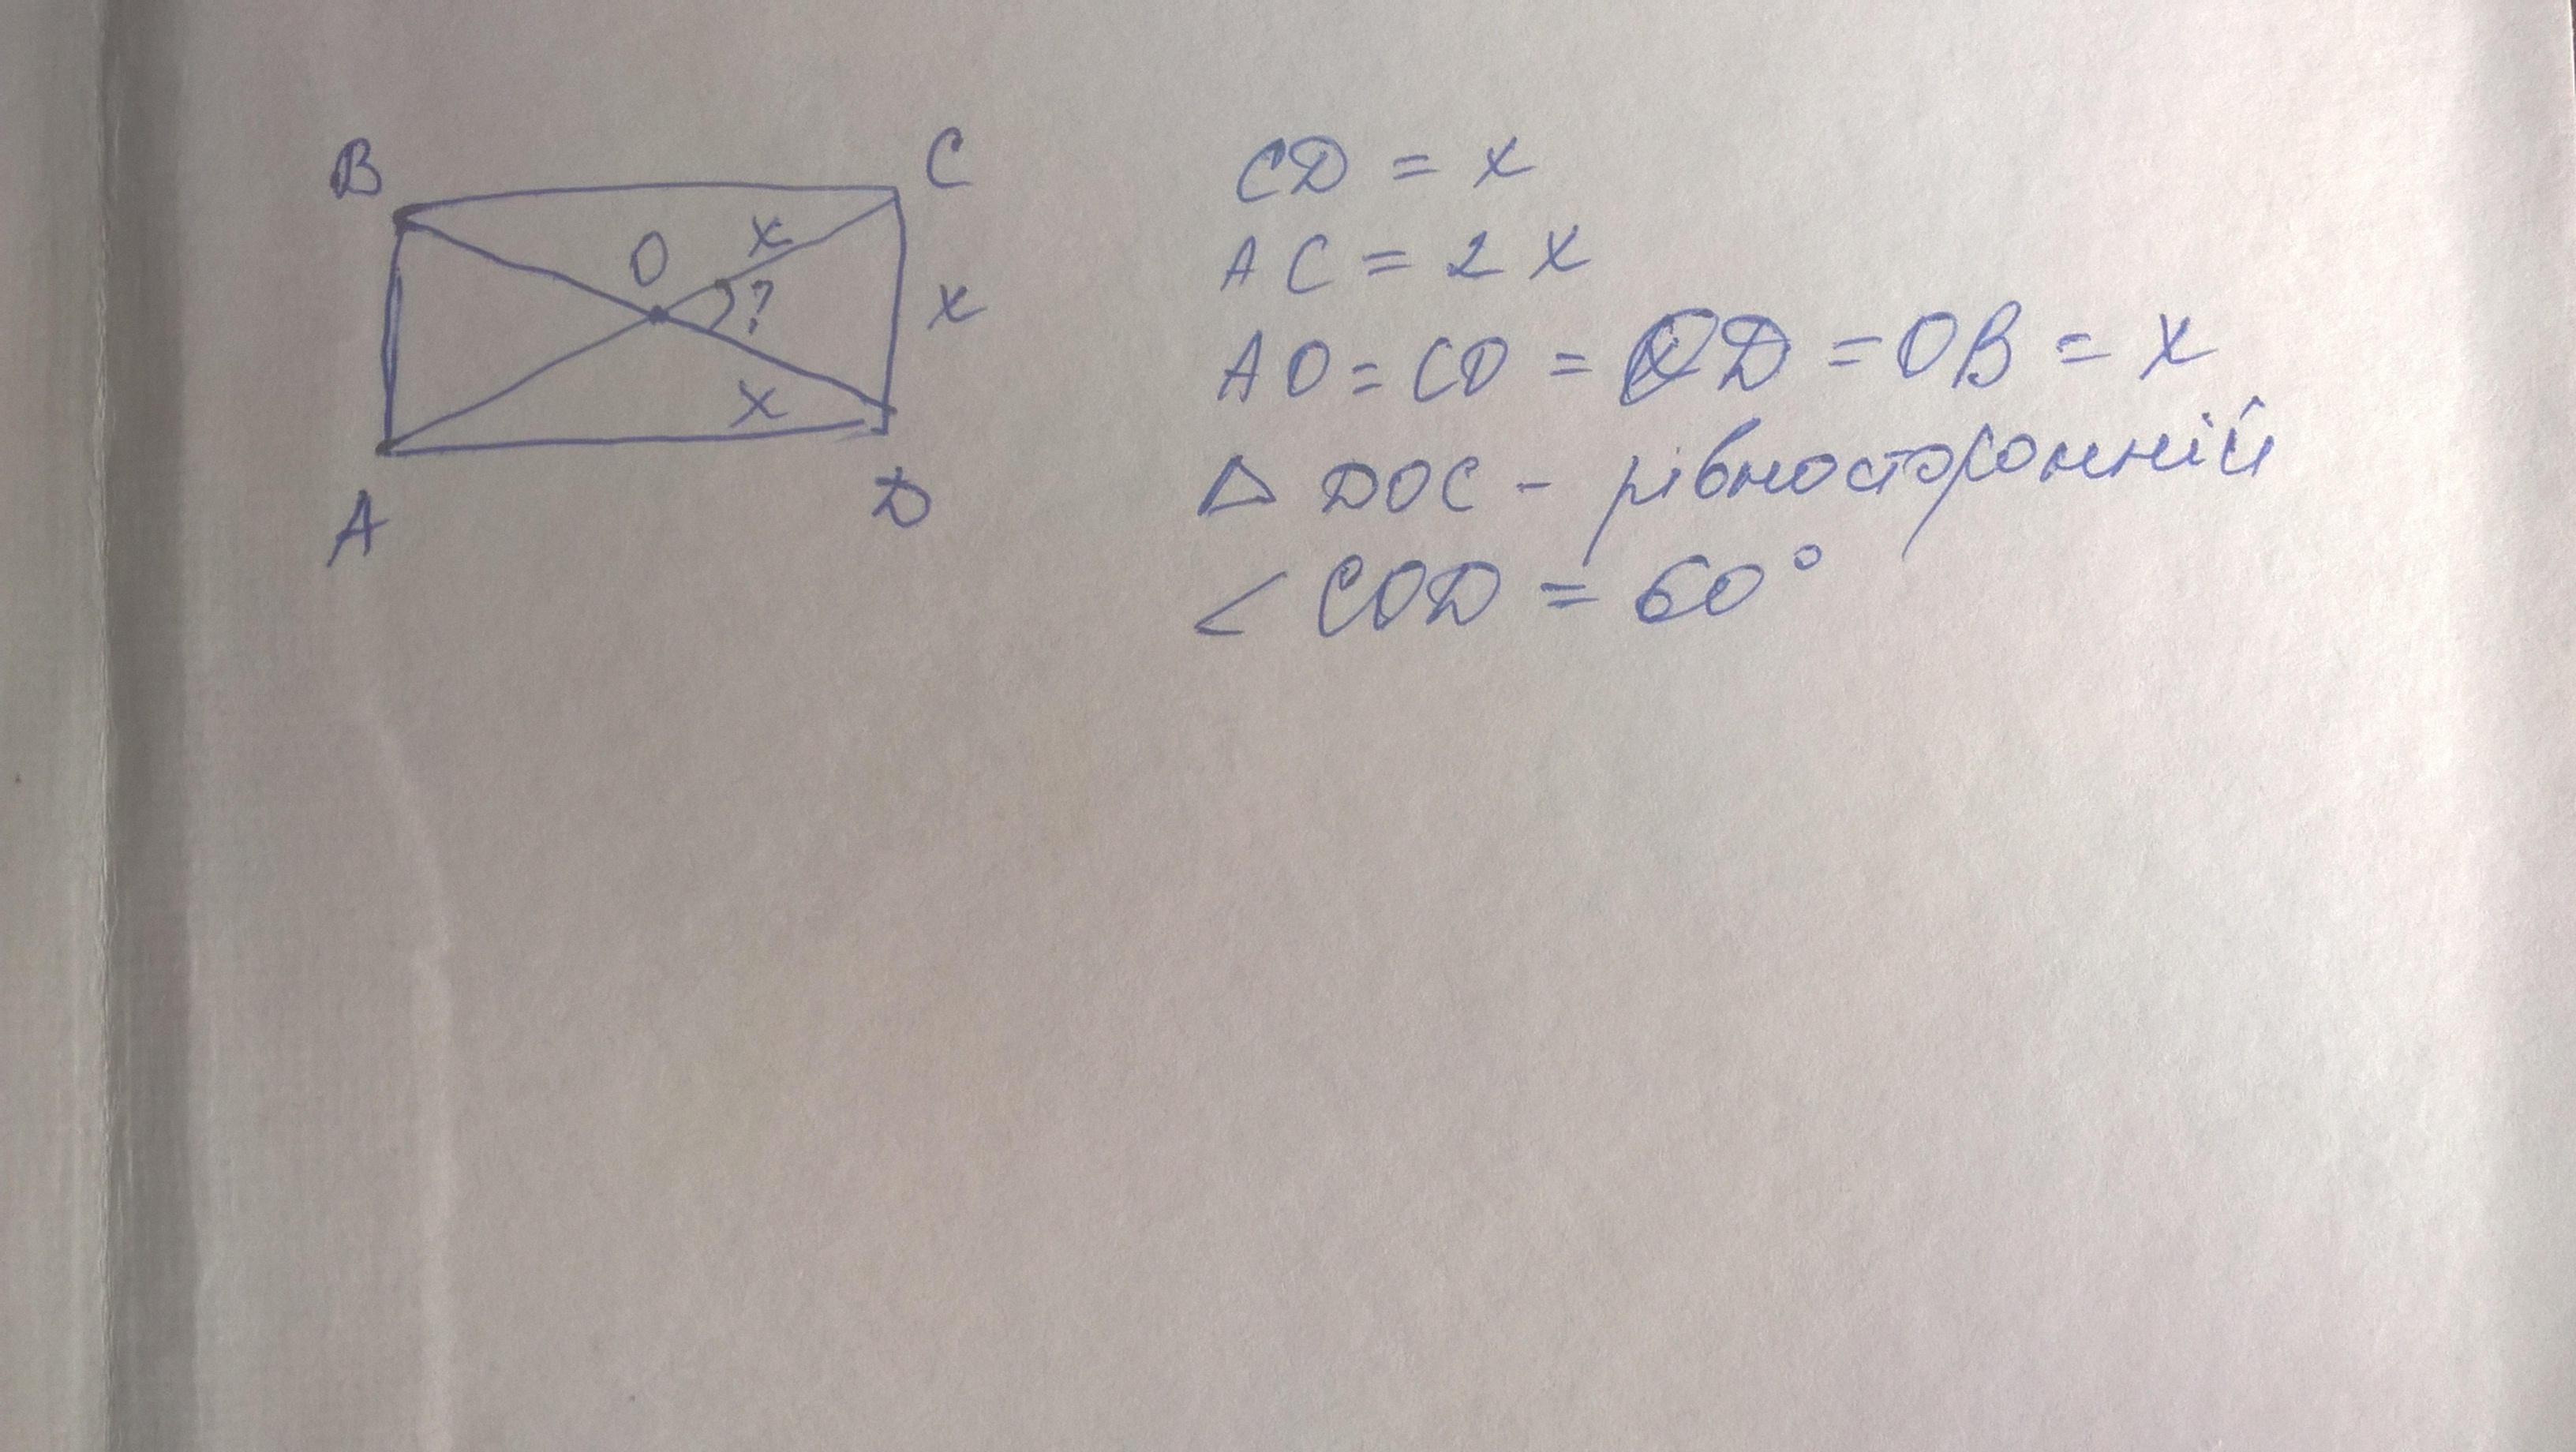 B C
O x
? x
x
A D
CD = x
AC = 2x
AO = CO = OD = OB = x
△ DOC - рівносторонній
∠ COD = 60°